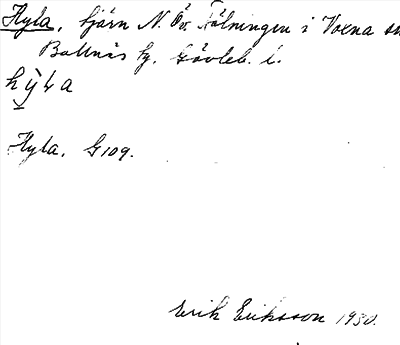 Hyla, tjärn N. Öv. Fälningen i Voxna sn
Bollnäs tg. Gävleb. l.
hy̆ɫa
Hyla. G109.
Erik Eriksson 1930.